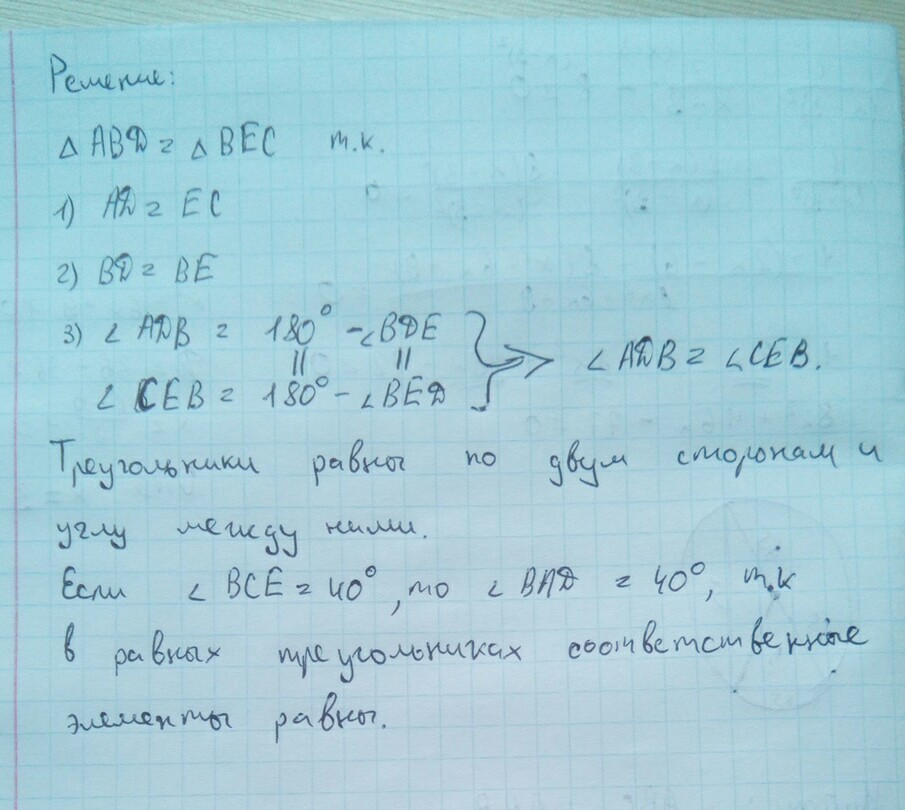 Решение:
△ ABD = △ BEC т.к.
1) AD = EC
2) BD = BE
3) ∠ ADB = 180° - ∠BDE
|| ||
∠ CEB = 180° - ∠BED
∠ADB = ∠CEB.
Треугольники равны по двум сторонам и
углу между ними.
Если ∠ BCE = 40°, то ∠ BAD = 40°, т.к
в равных треугольниках соответственные
элементы равны.